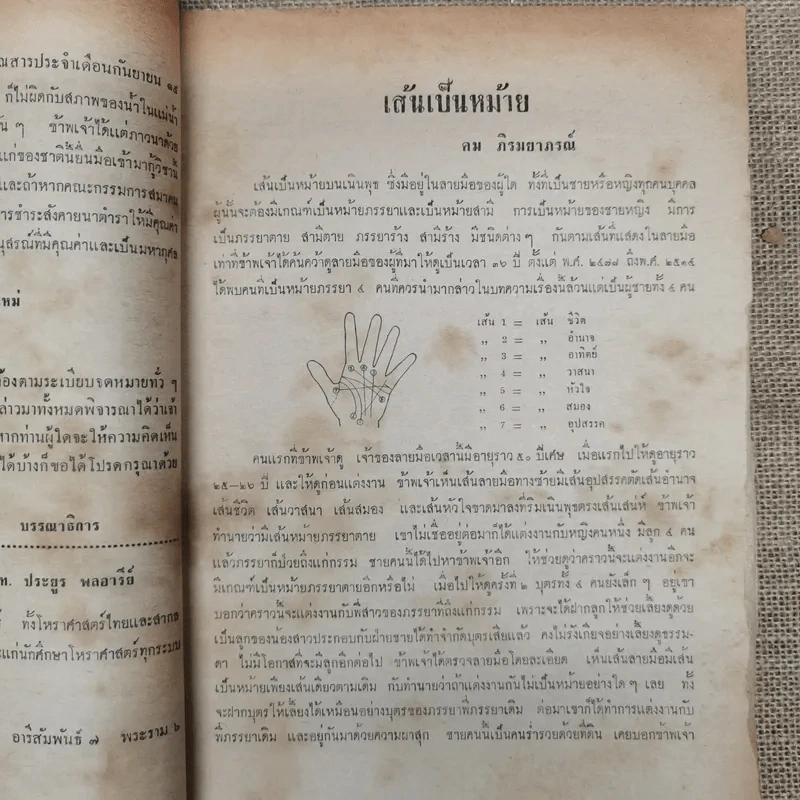 ณสารประจำเดือนกันยายน ๑๕
ก็ไม่ผิดกับสภาพของน้ำในแม่น้ำ
ข้าพเจ้าได้แต่ภาวนาด้วย
แก่ของชาตินี้ยื่นมือเข้ามากู้วิชานี้
และถ้าหากคณะกรรมการสมาคม
การชำระสังคายนาตำราให้มีคุณค่า
นุสรณ์ที่มีคุณค่าและเป็นมหากุศล
ใหม่
ต้องตามระเบียบจดหมายทั่ว ๆ
ล่าวมาทั้งหมดพิจารณาได้ว่าเจ้า
หากท่านผู้ใดจะให้ความคิดเห็น
ได้บ้างก็ขอได้โปรดกรุณาด้วย
บรรณาธิการ
ท. ประยูร พลอารีย์
ทั้งโหราศาสตร์ไทยและสากล
แก่นักศึกษาโหราศาสตร์ทุกระบบ
อารีสัมพันธ์ ๗ พระราม ๖
เส้นเป็นหม้าย
คม ภิรมยาภรณ์
เส้นเป็นหม้ายบนเนินพุธ ซึ่งมีอยู่ในลายมือของผู้ใด ทั้งที่เป็นชายหรือหญิงทุกคนบุคคล
ผู้นั้นจะต้องมีเกณฑ์เป็นหม้ายภรรยาและเป็นหม้ายสามี การเป็นหม้ายของชายหญิง มีการ
เป็นภรรยาตาย สามีตาย ภรรยาร้าง สามีร้าง มีชนิดต่าง ๆ กันตามเส้นที่แสดงในลายมือ
เท่าที่ข้าพเจ้าได้ค้นคว้าดูลายมือของผู้ที่มาให้ดูเป็นเวลา ๓๖ ปี ตั้งแต่ พ.ศ. ๒๔๗๘ ถึงพ.ศ. ๒๕๑๔
ได้พบคนที่เป็นหม้ายภรรยา ๔ คนที่ควรนำมากล่าวในบทความเรื่องนี้ล้วนแต่เป็นผู้ชายทั้ง ๔ คน
เส้น 1 = เส้น ชีวิต
,, 2 = ,, อำนาจ
,, 3 = ,, อาทิตย์
,, 4 = ,, วาสนา
,, 5 = ,, หัวใจ
,, 6 = ,, สมอง
,, 7 = ,, อุปสรรค
คนแรกที่ข้าพเจ้าดู เจ้าของลายมือเวลานี้มีอายุราว ๕๐ ปีเศษ เมื่อแรกไปให้ดูอายุราว
๒๕—๒๖ ปี และให้ดูก่อนแต่งงาน ข้าพเจ้าเห็นเส้นลายมือทางซ้ายมีเส้นอุปสรรคตัดเส้นอำนาจ
เส้นชีวิต เส้นวาสนา เส้นสมอง และเส้นหัวใจขาดมาลงที่ริมเนินพุธตรงเส้นเส่นห์ ข้าพเจ้า
ทำนายว่ามีเส้นหม้ายภรรยาตาย เขาไม่เชื่ออยู่ต่อมาก็ได้แต่งงานกับหญิงคนหนึ่ง มีลูก ๔ คน
แล้วภรรยาก็ป่วยถึงแก่กรรม ชายคนนี้ได้ไปหาข้าพเจ้าอีก ให้ช่วยดูว่าคราวนี้จะแต่งงานอีกจะ
มีเกณฑ์เป็นหม้ายภรรยาตายอีกหรือไม่ เมื่อไปให้ดูครั้งที่ ๒ บุตรทั้ง ๔ คนยังเล็ก ๆ อยู่เขา
บอกว่าคราวนี้จะแต่งงานกับพี่สาวของภรรยาที่ถึงแก่กรรม เพราะจะได้ฝากลูกให้ช่วยเลี้ยงดูด้วย
เป็นลูกของน้องสาวประกอบกับฝ่ายชายได้ทำจำกัดบุตรเสียแล้ว คงไม่รังเกียจอย่างเลี้ยงดูธรรม-
ดา ไม่มีโอกาสที่จะมีลูกอีกต่อไป ข้าพเจ้าได้ตรวจลายมือโดยละเอียด เห็นเส้นลายมือมีเส้น
เป็นหม้ายเพียงเส้นเดียวตามเดิม กับทำนายว่าถ้าแต่งงานกันไม่เป็นหม้ายอย่างใด ๆ เลย ทั้ง
จะฝากบุตรให้เลี้ยงได้เหมือนอย่างบุตรของภรรยาพี่ภรรยาเดิม ต่อมาเขาก็ได้ทำการแต่งงานกับ
พี่ภรรยาเดิม และอยู่กันมาด้วยความผาสุก ชายคนนี้เป็นคนร่ำรวยด้วยที่ดิน เคยบอกข้าพเจ้า